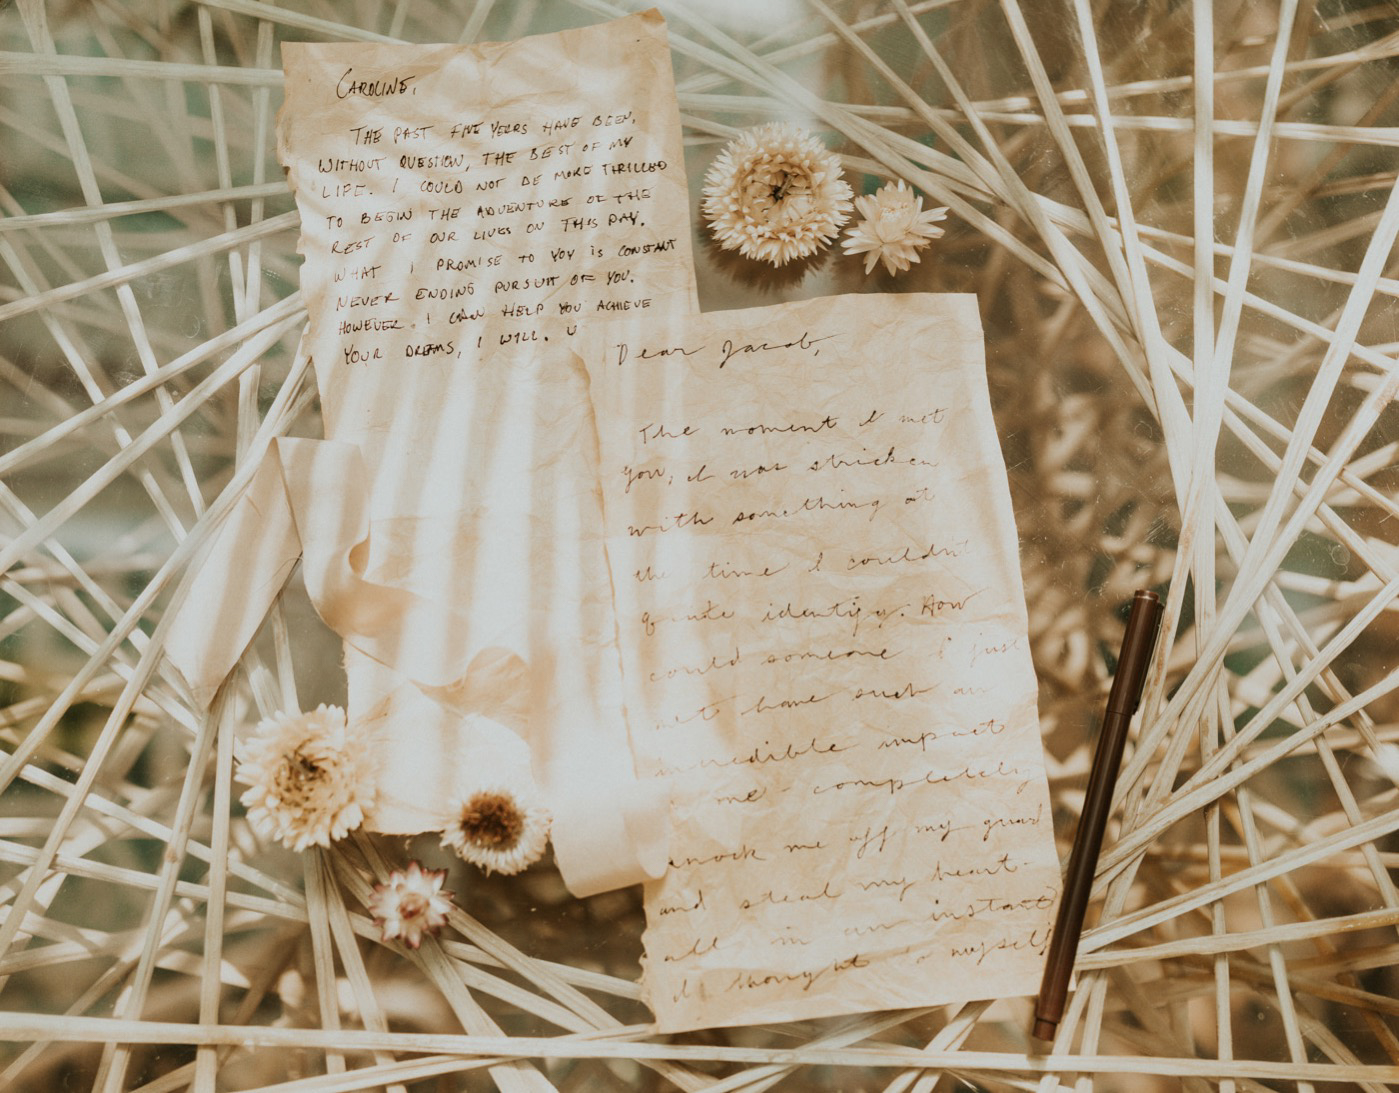 CAROLINE,
THE PAST FIVE YEARS HAVE BEEN,
WITHOUT QUESTION, THE BEST OF MY
LIFE. I COULD NOT BE MORE THRILLED
TO BEGIN THE ADVENTURE OF THE
REST OF OUR LIVES ON THIS DAY.
WHAT I PROMISE TO YOU IS CONSTANT
NEVER ENDING PURSUIT OF YOU.
HOWEVER I CAN HELP YOU ACHIEVE
YOUR DREAMS, I WILL.
Dear Jacob,
The moment I met
you, I was stricken
with something at
the time I couldn't
quite identify. How
could someone I just
met have such an
incredible impact
me - completely
knock me off my guard
and steal my heart
all in an instant
I thought to myself